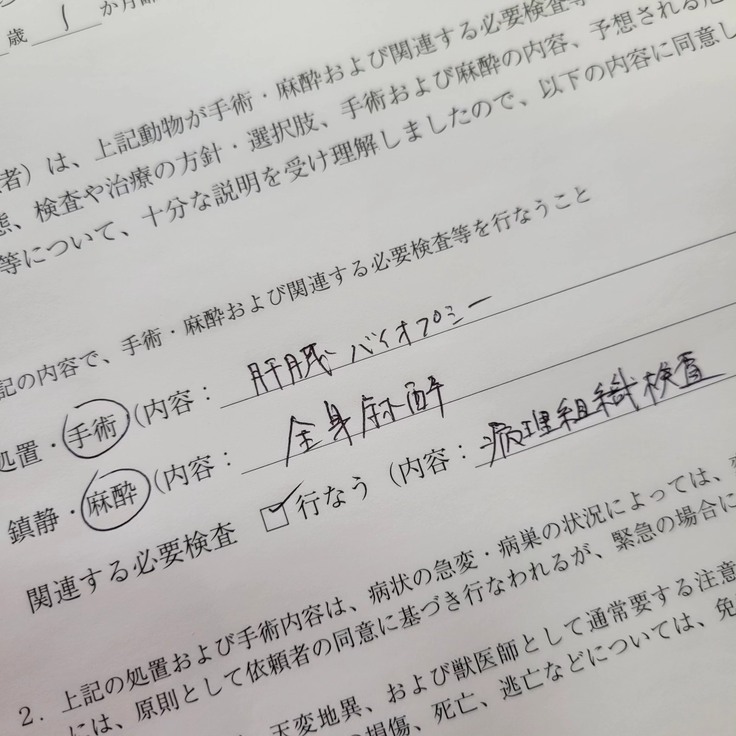 歳 1 か月齢
者）は、上記動物が手術・麻酔および関連する必要検査等
態、検査や治療の方針・選択肢、手術および麻酔の内容、予想される
等について、十分な説明を受け理解しましたので、以下の内容に同意し
記の内容で、手術・麻酔および関連する必要検査等を行なうこと
処置・手術（内容： 肝臓バイオプシー
鎮静・麻酔（内容： 全身麻酔
関連する必要検査 ☑行なう（内容： 病理組織検査
2．上記の処置および手術内容は、病状の急変・病巣の状況によっては、
には、原則として依頼者の同意に基づき行なわれるが、緊急の場合に
天変地異、および獣医師として通常要する注意
損傷、死亡、逃亡などについては、免